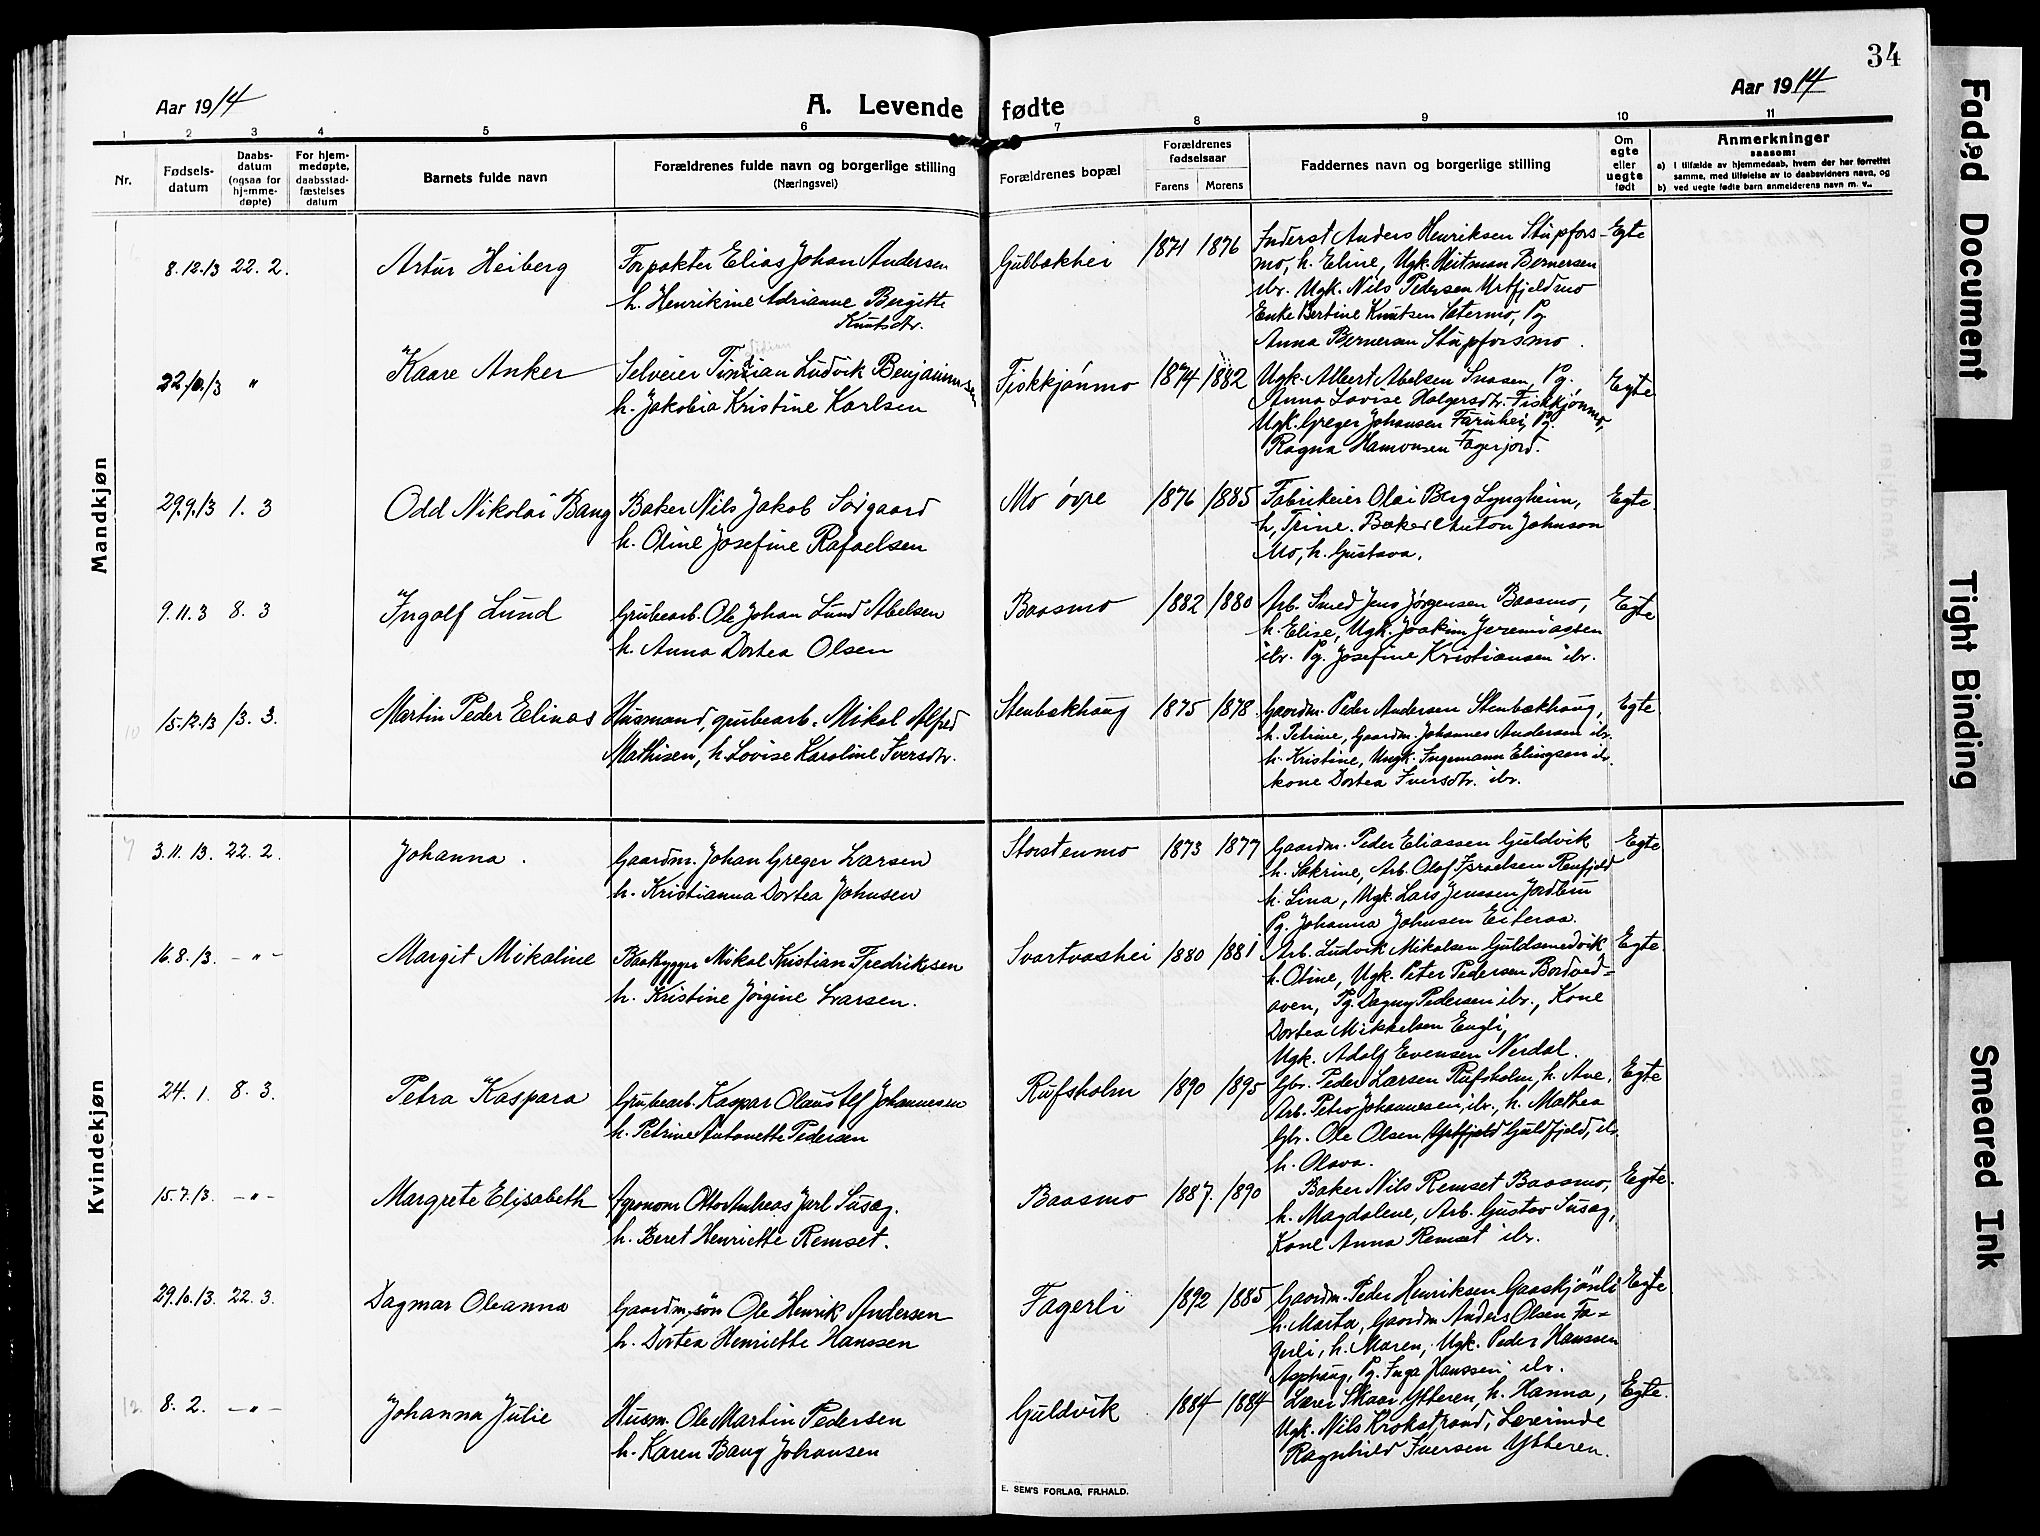 34
Aar 1914
A. Levende fødte
Aar 1914
1 2 3 4 5 6 7 8 9 10 11
Nr.
Fødsels-
datum
Daabs-
datum
(ogsaa for
hjemme-
døpte)
For hjem-
medøpte,
daabsstad-
fæstelses
datum
Barnets fulde navn
Forældrenes fulde navn og borgerlige stilling
(Næringsvei)
Forældrenes bopæl
Forældrenes
fødselsaar
Farens Morens
Faddernes navn og borgerlige stilling
Om
egte
eller
uegte
født
Anmerkninger
saasom:
a) i tilfælde av hjemmedaab, hvem der har forrettet
samme, med tilføielse av to daabsvidners navn, og
b) ved uegte fødte barn anmelderens navn m. v.
Mandkjøn
8.12.13 22. 2. Artur Heiberg
Forpakter Elias Johan Andersen
h. Henrikine Adrianne Bergitte
Knutsdtr.
Gulbakhei 1871 1876
Inderst Anders Henriksen Stupfors-
mo, h. Eline, Ugk. Heitman Bernersen
ibr. Ugk. Nils Pedersen Urtfjeldmo
Enke Bertine Knutsen Setermo, Pg
Anna Bernersen Stupforsmo.
Egte
22.10.13 " Kaare Anker
Selveier Tinzian Ludvik Benjaminsen
h. Jakobia Kristine Karlsen
Fiskkjønmo 1874 1882
Ugk. Albert Abelsen Snasen, Pg.
Anna Lovise Holgersdtr. Fiskkjønmo,
Ugk. Greger Johansen Faruhei, Pg.
Ragna Hamonsen Fagerjord.
Egte
29.9.13 1. 3 Odd Nikolai Bang
Baker Nils Jakob Sørgaard
h. Oline Josefine Rafaelsen
Mo øvre 1876 1885
Fabrikeier Olai Berg Lyngheim,
h, Trine. Baker Anton Johnson
Mo, h. Gustava.
Egte.
9.11.3 8. 3 Ingolf Lund
Grubearb. Ole Johan Lund Abelsen
h. Anna Dortea Olsen
Baasmo 1882 1880
Arb. Smed Jens Jørgensen Baasmo,
h. Elise, Ugk. Joakim Jeremiassen
ibr. Pg. Josefine Kristiansen ibr.
Egte
10 15.12.13 13. 3. Martin Peder Elinas
Husmand, grubearb. Mikal Alfred
Mathisen, h. Lovise Karoline Iversdtr.
Stenbækhaug 1875 1878.
Gaardm. Peder Andersen Stenbækhaug,
h. Petrine, Gaardm. Johannes Andersen ibr.
h. Kristine, Ungk. Ingemann Elingsen ibr.
kone Dortea Iversdtr. ibr.
Egte
Kvindekjøn
7 3.11.13. 22. 2. Johanna.
Gaardm. Johan Greger Larsen
h. Kristianna Dortea Johnsen
Storstenmo 1873 1877
Gaardm. Peder Eliassen Guldvik
h. Sakrine, Arb. Olaf Israelsen Renfjeld
h. Lina, Ugk. Lars Jenssen Jordbru
Pg. Johanna Johnsen Eiteraa.
Egte
16.8.13. -"- Margit Mikaline
Baatbygger Mikal Kristian Fredriksen
h. Kristine Jørgine Larsen.
Svartvashei 1880 1881
Arb. Ludvik Mikalsen Guldsmedvik
h. Otine, Ugk. Peter Pedersen Bordved-
aven, Pg. Dagny Pedersen ibr., Kone
Dortea Mikkelsen Engli,
Ugk. Adolf Evensen Nerdal.
Egte.
24. 1. 8. 3. Petra Kaspara
Grubearb. Kaspar Olaus Alf Johannesen
h. Petrine Antonette Pedersen
Rufsholm 1890 1895
Gbr. Peder Larsen Rufsholm, h. Ave,
Arb. Petro Johannesen, ibr., h. Mathea
Gbr. Ole Olsen Urtfjeld Guldfjeld, ibr.
h. Olava.
Egte
15.7.13. -"- Margrete Elisabeth
Agronom Otto Andreas Jarl Susæg.
h. Beret Henriette Remset.
Baasmo 1887. 1890
Baker Nils Remset Baasmo,
h. Magdalene, Arb. Gustav Susæg,
Kone Anna Remset ibr.
Egte.
29.10.13. 22. 3. Dagmar Oleanna
Gaardm. søn Ole Henrik Andersen
h. Dortea Henriette Hanssen
Fagerli 1892 1885
Gaardm. Peder Henriksen Gaaskjønli
h. Marta, Gaardm Anders Olsen Fa-
gerli, h. Maren, Ugk. Peder Hanssen
Asphaug, Pg. Inga Hanssen ibr.
Egte
12. 8. 2. -"- Johanna Julie
Husm. Ole Martin Pedersen
h. Karen Bang Johansen
Guldvik 1884 1884
Lærer Skaar Ytteren, h. Hanna,
Ugk. Nils Krokstrand, Lærerinde
Ragnhild Iversen Ytteren.
Egte.
E. SEM'S FORLAG, FR.HALD.
Faded Document
Tight Binding
Smeared Ink